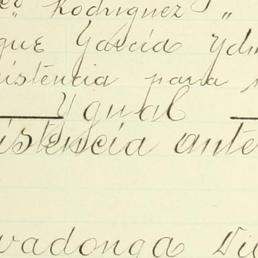 Rodriguez "
que Garcia Ydm
istencia para
Ygual
istencia ante
vadonga Die